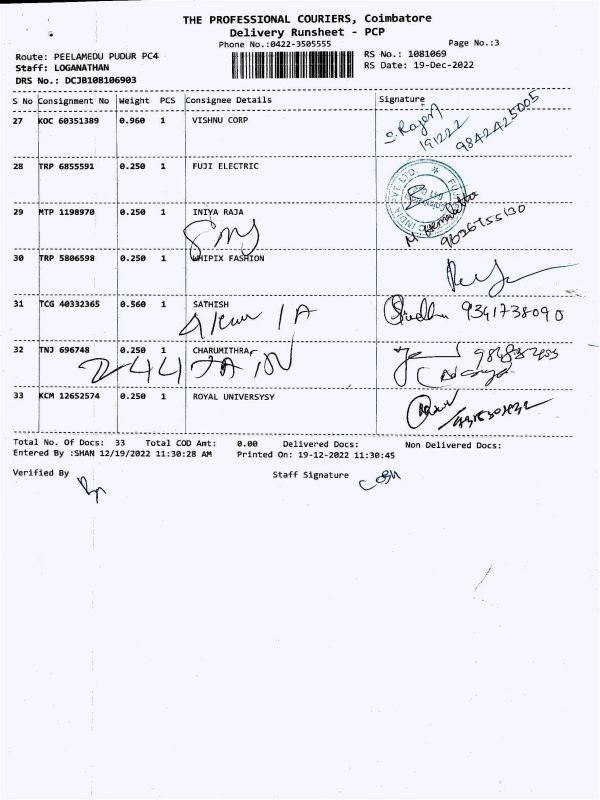 THE PROFESSIONAL COURIERS, Coimbatore
Delivery Runsheet - PCP
Phone No.:0422-3505555
Page No.:3
Route: PEELAMEDU PUDUR PC4
RS No.: 1081069
Staff: LOGANATHAN
RS Date: 19-Dec-2022
DRS No.: DCJB108106903
S No Consignment No Weight PCS Consignee Details Signature
27 KOC 60351389 0.960 1 VISHNU CORP
S. Rajan
191222
9842425005
28 TRP 6855591 0.250 1 FUJI ELECTRIC
29 MTP 1198970 0.250 1 INIYA RAJA
9626755130
30 TRP 5806598 0.250 1 WHIPIX FASHION
31 TCG 40332365 0.560 1 SATHISH
9341738090
32 TNJ 696748 0.250 1 CHARUMITHRA
244 JAIN
33 KCM 12652574 0.250 1 ROYAL UNIVERSYSY
Total No. Of Docs: 33 Total COD Amt: 0.00 Delivered Docs: Non Delivered Docs:
Entered By :SHAN 12/19/2022 11:30:28 AM Printed On: 19-12-2022 11:30:45
Verified By Staff Signature